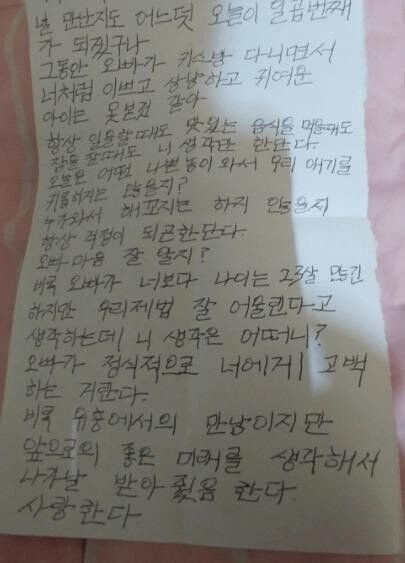 널 만난지도 어느덧 오늘이 일곱번째
가 되겠구나
그동안 오빠가 키스방 다니면서
너처럼 이쁘고 상냥하고 귀여운
아이는 못본것 같아
항상 일을할때도 맛있는 음식을 먹을때도
잠을 잘때도 니 생각만 한단다.
오늘은 어떤 나쁜 놈이 와서 우리 애기를
괴롭히지는 않을지?
누가와서 해꼬지는 하지 않을지
항상 걱정이 되곤한단다.
오빠 마음 잘 알지?
비록 오빠가 너보다 나이는 23살 많긴
하지만 우리제법 잘 어울린다고
생각하는데 니 생각은 어떠니?
오빠가 정식적으로 너에게 고백
하는 거란다.
비록 유흥에서의 만남이지만
앞으로의 좋은 미래를 생각해서
나가날 받아 줬음 한다
사랑한다.